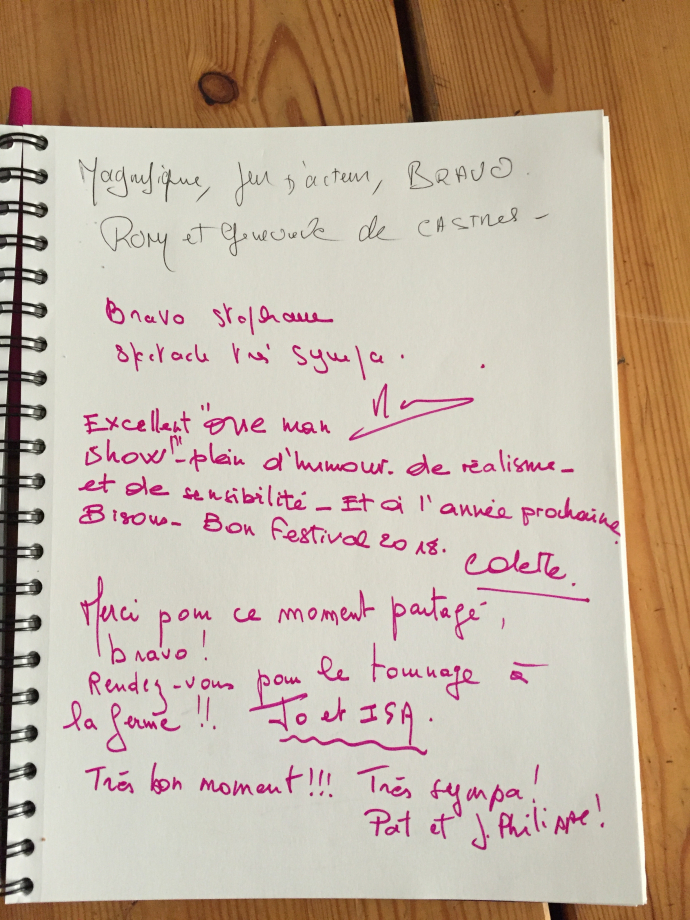 Magnifique, Jeu d'acteur, BRAVO.
ROMY et Geneviève de CASTRES -
Bravo stephane
spectacle très sympa.
Excellent "one man
show" - plein d'humour. de réalisme -
et de sensibilité - Et à l'année prochaine.
Bisous - Bon Festival 2018.
Colette.
Merci pour ce moment partagé,
bravo!
Rendez-vous pour le tournage à
la ferme !! Jo et ISA.
Très bon moment!!! Très sympa!
Pat et J. Philippe!